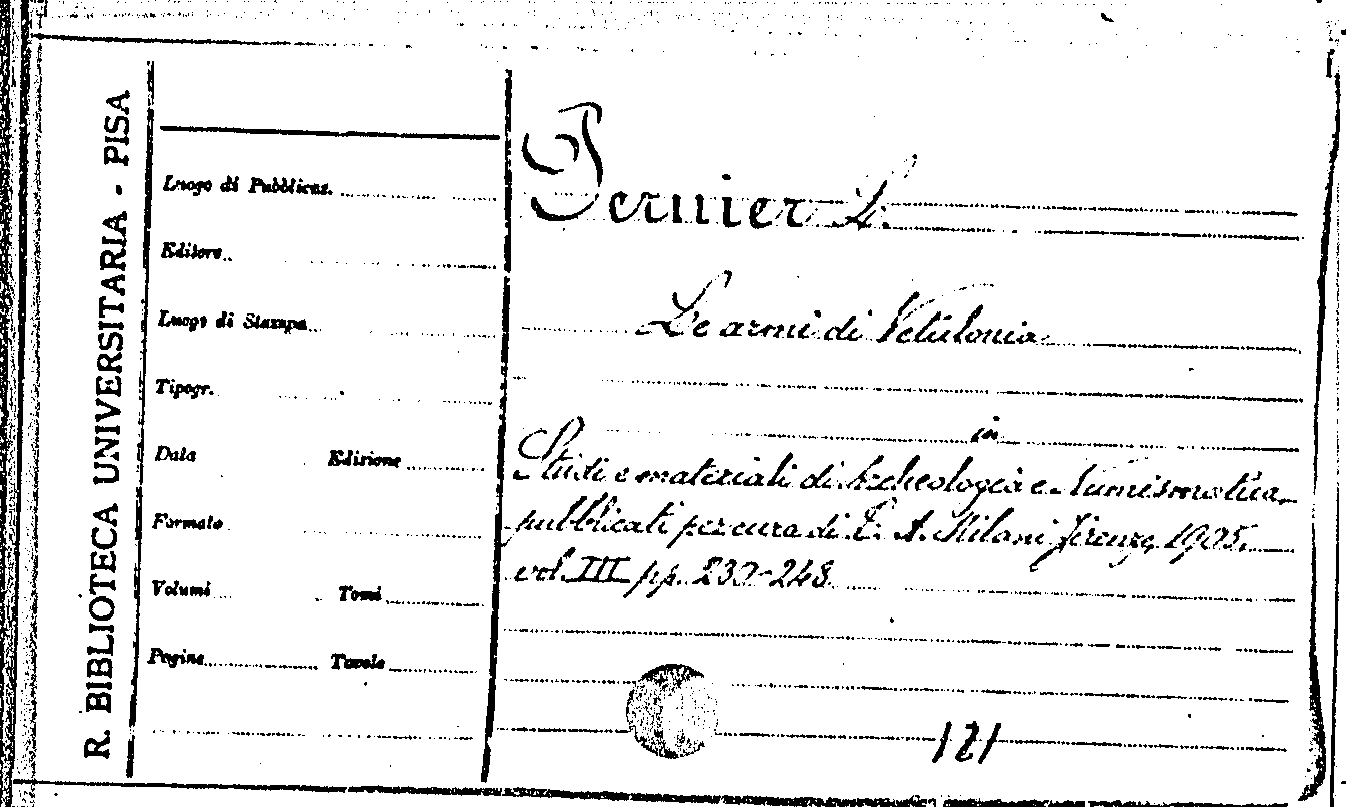 R. BIBLIOTECA UNIVERSITARIA - PISA
Luogo di Pubblicaz.
Editore
Luogo di Stampa
Tipogr.
Data Edizione
Formato
Volumi Tomi
Pagine Tavole
Pernier L.
Le armi di Vetulonia
in
Studi e materiali di Archeologia e Numismatica
pubblicati per cura di L. A. Milani Firenze, 1905.
vol. III pp. 230-248
121